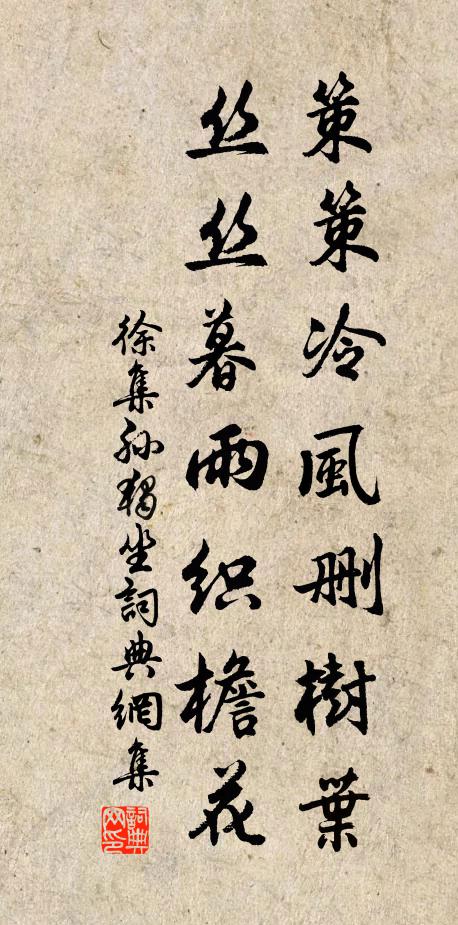 策策冷風刪樹葉
丝丝暮雨织檐花
徐集孙獨坐詞典網集
詞典网印